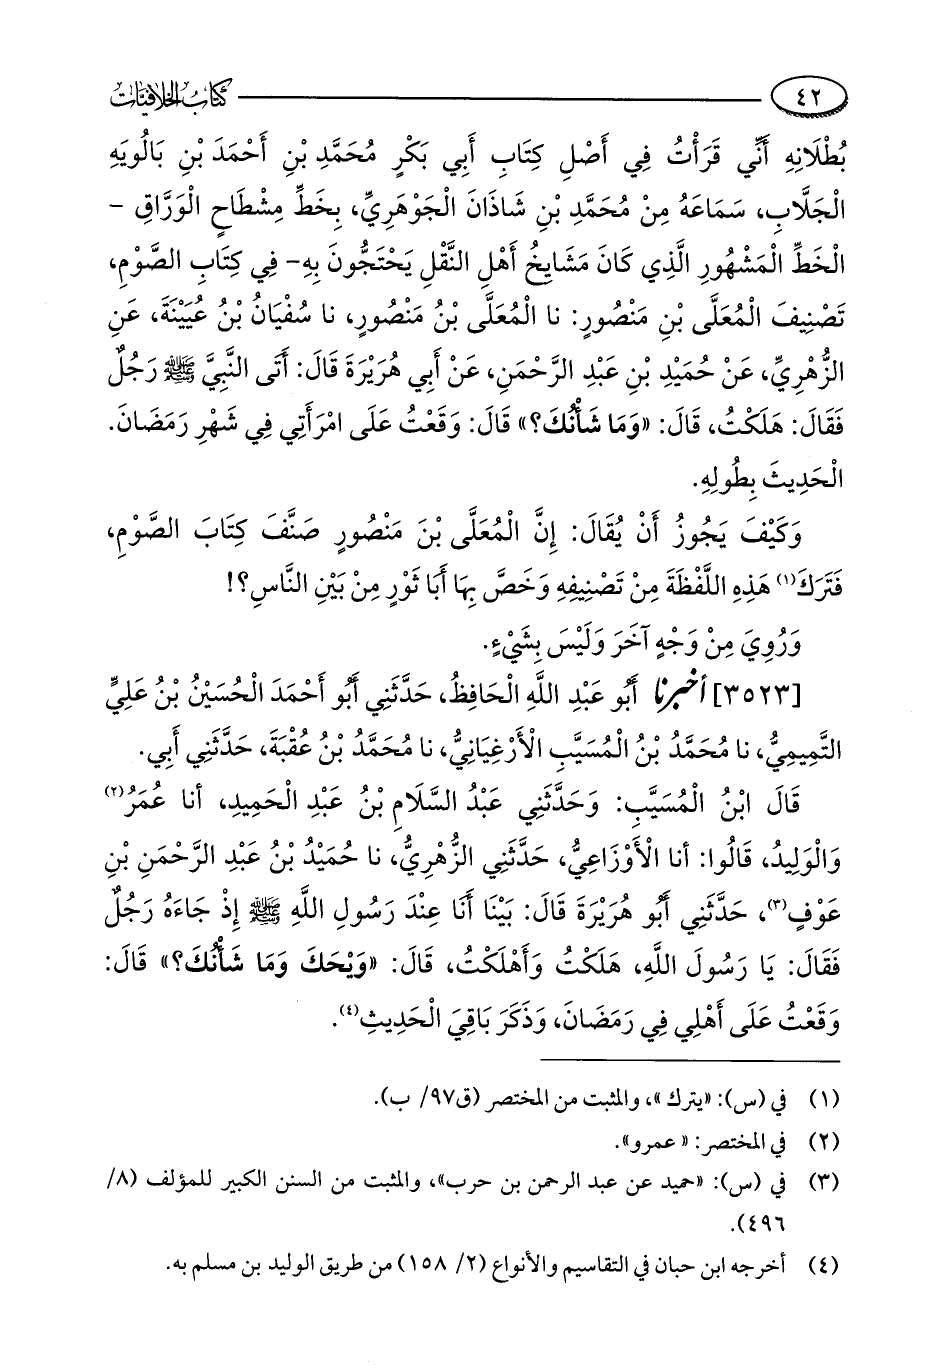 ٤٢ كتاب الخلافيات
بُطْلَانِهِ أَنِّي قَرَأْتُ فِي أَصْلِ كِتَابِ أَبِي بَكْرٍ مُحَمَّدِ بْنِ أَحْمَدَ بْنِ بَالُويَهِ
الْجَلَّابِ، سَمَاعَهُ مِنْ مُحَمَّدِ بْنِ شَاذَانَ الْجَوْهَرِيِّ، بِخَطِّ مِشْطَاحٍ الْوَرَّاقِ -
الْخَطِّ الْمَشْهُورِ الَّذِي كَانَ مَشَايِخُ أَهْلِ النَّقْلِ يَحْتَجُّونَ بِهِ- فِي كِتَابِ الصَّوْمِ،
تَصْنِيفَ الْمُعَلَّى بْنِ مَنْصُورٍ: نا الْمُعَلَّى بْنُ مَنْصُورٍ، نا سُفْيَانُ بْنُ عُيَيْنَةَ، عَنِ
الزُّهْرِيِّ، عَنْ حُمَيْدِ بْنِ عَبْدِ الرَّحْمَنِ، عَنْ أَبِي هُرَيْرَةَ قَالَ: أَتَى النَّبِيَّ ﷺ رَجُلٌ
فَقَالَ: هَلَكْتُ، قَالَ: «وَمَا شَأْنُكَ؟» قَالَ: وَقَعْتُ عَلَى امْرَأَتِي فِي شَهْرِ رَمَضَانَ.
الْحَدِيثَ بِطُولِهِ.
وَكَيْفَ يَجُوزُ أَنْ يُقَالَ: إِنَّ الْمُعَلَّى بْنَ مَنْصُورٍ صَنَّفَ كِتَابَ الصَّوْمِ،
فَتَرَكَ(١) هَذِهِ اللَّفْظَةَ مِنْ تَصْنِيفِهِ وَخَصَّ بِهَا أَبَا ثَوْرٍ مِنْ بَيْنِ النَّاسِ؟!
وَرُوِيَ مِنْ وَجْهٍ آخَرَ وَلَيْسَ بِشَيْءٍ.
[٣٥٢٣] أخبرنا أَبُو عَبْدِ اللَّهِ الْحَافِظُ، حَدَّثَنِي أَبُو أَحْمَدَ الْحُسَيْنُ بْنُ عَلِيٍّ
التَّمِيمِيُّ، نا مُحَمَّدُ بْنُ الْمُسَيَّبِ الْأَرْغِيَانِيُّ، نا مُحَمَّدُ بْنُ عُقْبَةَ، حَدَّثَنِي أَبِي.
قَالَ ابْنُ الْمُسَيَّبِ: وَحَدَّثَنِي عَبْدُ السَّلَامِ بْنُ عَبْدِ الْحَمِيدِ، أنا عُمَرُ(٢)
وَالْوَلِيدُ، قَالُوا: أنا الْأَوْزَاعِيُّ، حَدَّثَنِي الزُّهْرِيُّ، نا حُمَيْدُ بْنُ عَبْدِ الرَّحْمَنِ بْنِ
عَوْفٍ(٣)، حَدَّثَنِي أَبُو هُرَيْرَةَ قَالَ: بَيْنَا أَنَا عِنْدَ رَسُولِ اللَّهِ ﷺ إِذْ جَاءَهُ رَجُلٌ
فَقَالَ: يَا رَسُولَ اللَّهِ، هَلَكْتُ وَأَهْلَكْتُ، قَالَ: «وَيْحَكَ وَمَا شَأْنُكَ؟» قَالَ:
وَقَعْتُ عَلَى أَهْلِي فِي رَمَضَانَ، وَذَكَرَ بَاقِيَ الْحَدِيثِ(٤).
(١) في (س): «يترك»، والمثبت من المختصر (ق٩٧/ ب).
(٢) في المختصر: «عمرو».
(٣) في (س): «حميد عن عبد الرحمن بن حرب»، والمثبت من السنن الكبير للمؤلف (٨/
٤٩٦).
(٤) أخرجه ابن حبان في التقاسيم والأنواع (٢/ ١٥٨) من طريق الوليد بن مسلم به.